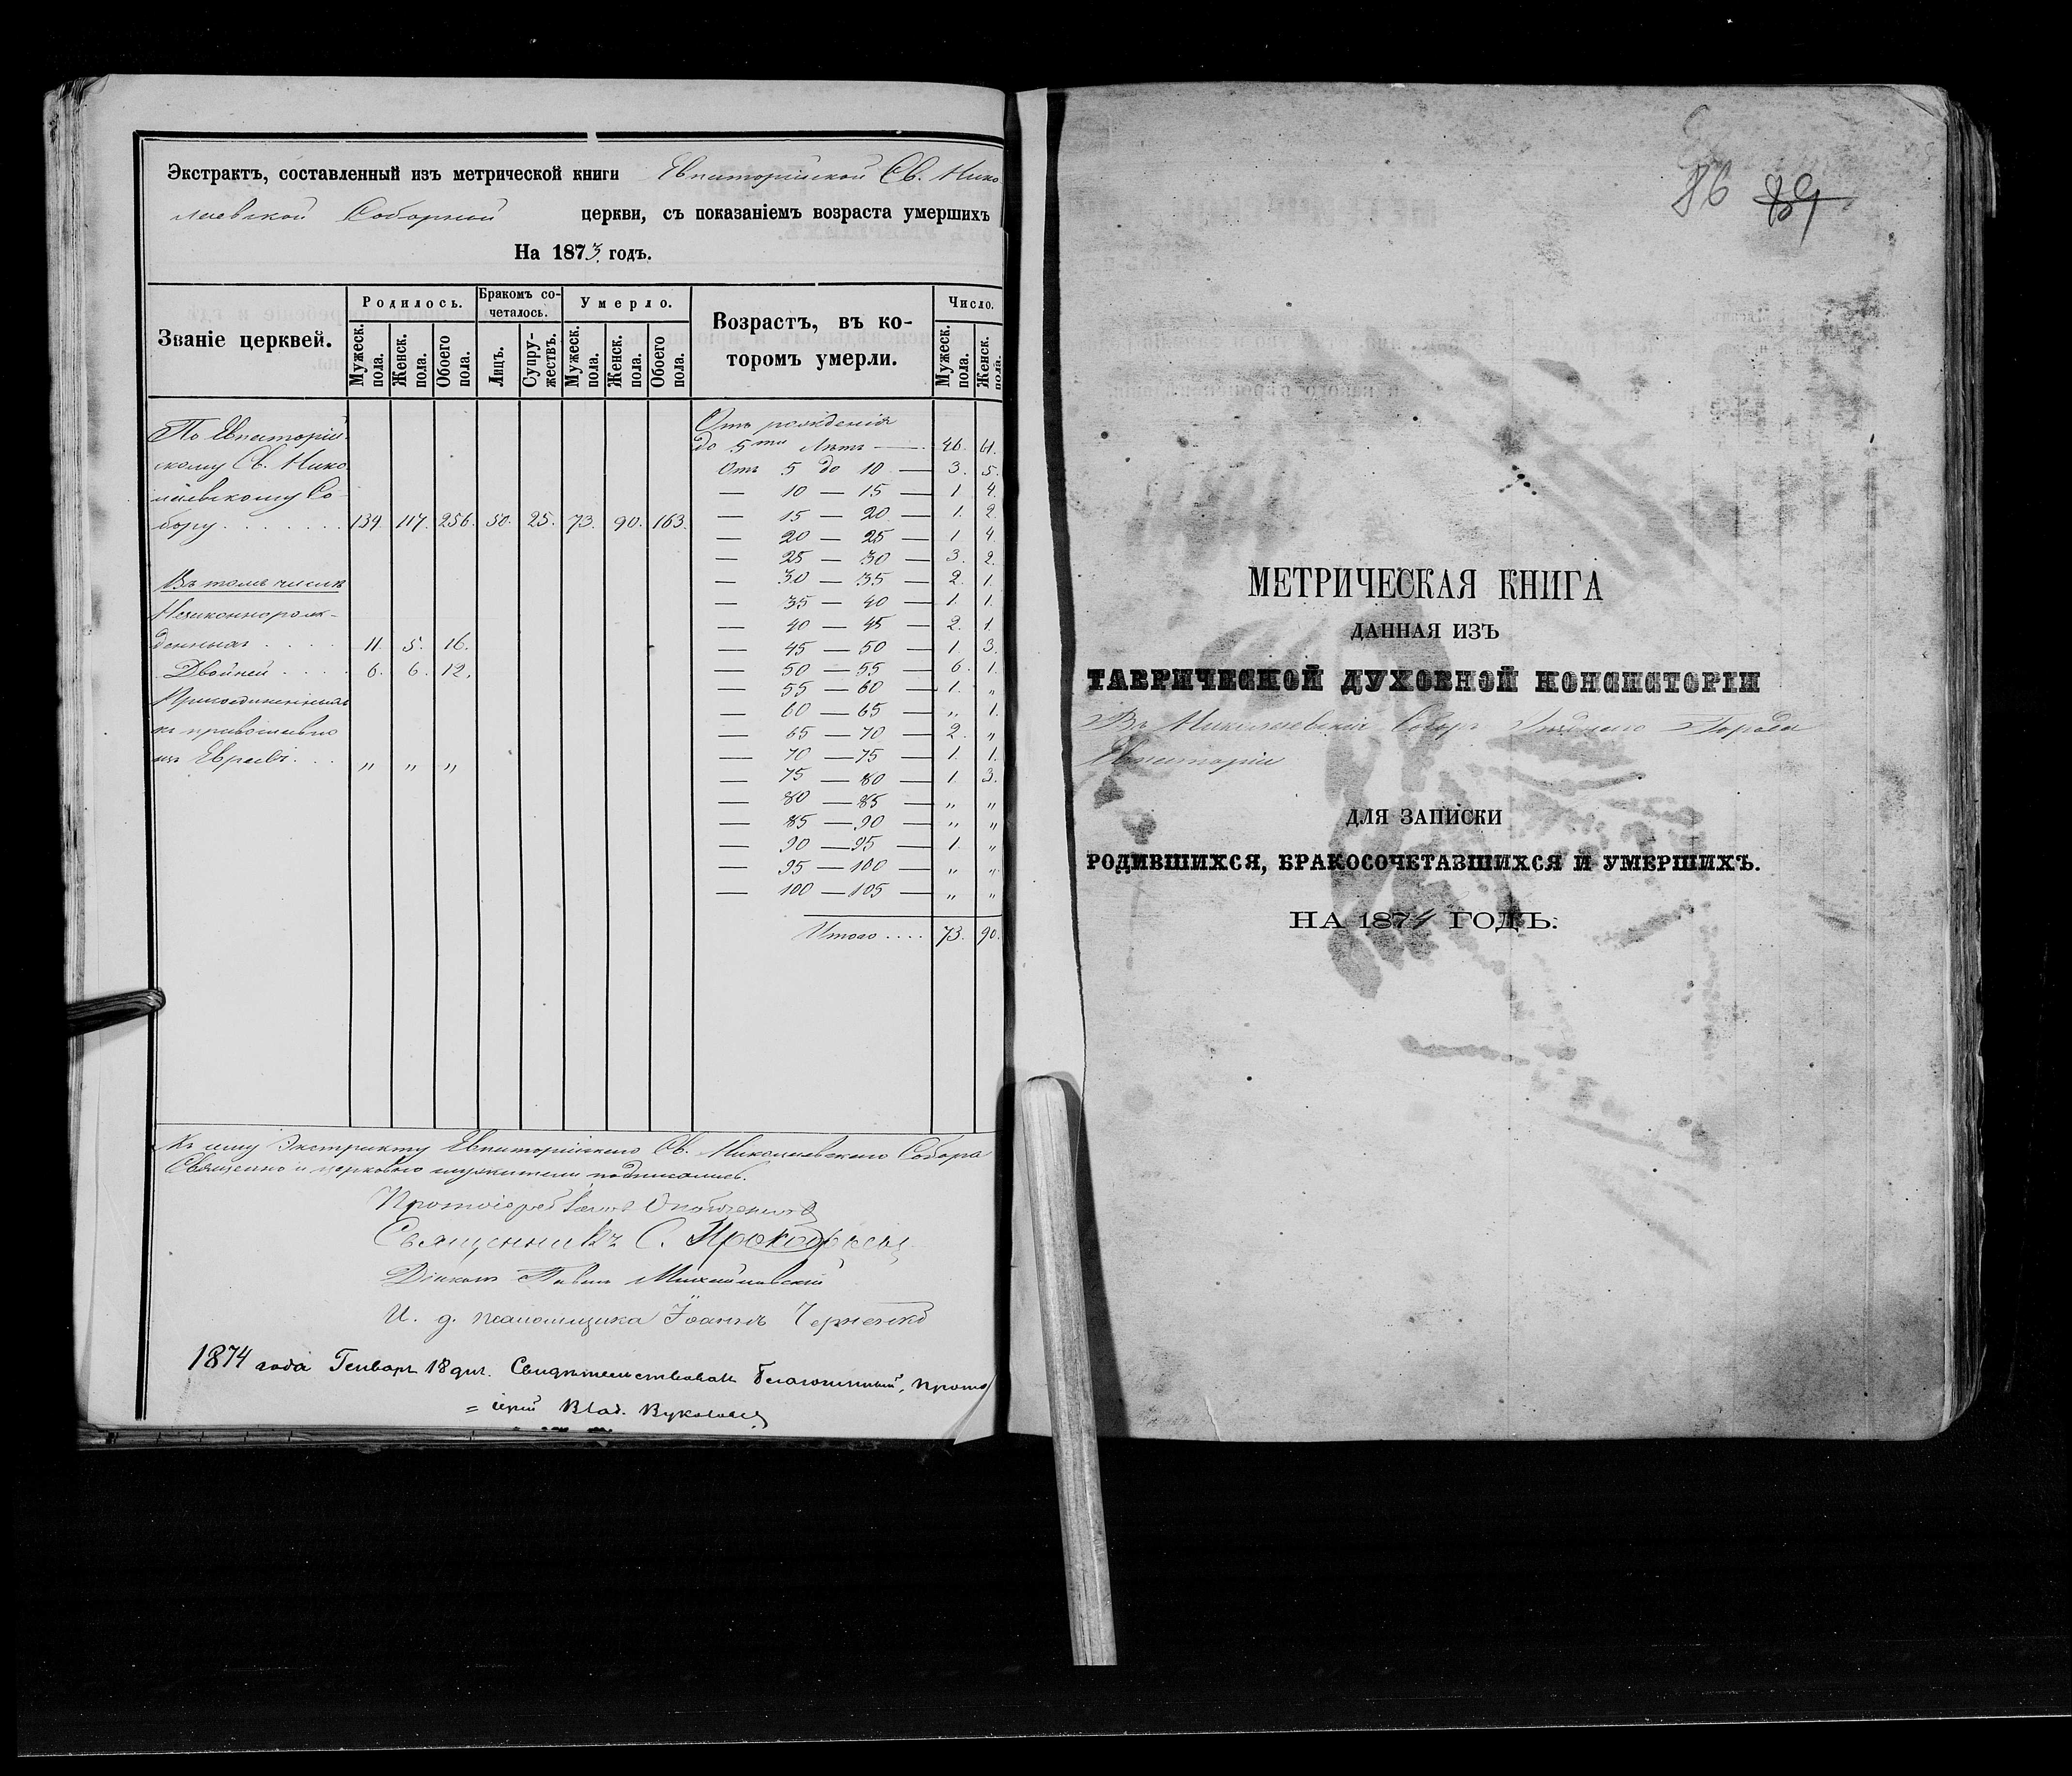 Экстрактъ, составленный изъ метрической книги Евпаторійской Св. Нико-
лаевской Соборной церкви, съ показаніемъ возраста умершихъ
На 1873. годъ.
Званіе церквей. Родилось. Бракомъ со- четалось. Умерло. Возрастъ, въ ко- торомъ умерли. Число.
Мужеск. пола. Женск. пола. Обоего пола. Лицъ. Супру- жествъ. Мужеск. пола. Женск. пола. Обоего пола. Мужеск. пола. Женск. пола.
По Евпаторій-
скому Св. Нико-
лаевскому Со-
бору . . . . . . . 139. 117. 256. 50. 25. 73. 90. 163.
Въ томъ числѣ
Незаконнорож-
денныхъ . . . . 11. 5. 16.
Двойней . . . . 6. 6. 12.
Присоединенныхъ
къ православію
изъ Евреевъ. . . „ „ „
Отъ рожденія
до 5ти лѣтъ — 46. 61.
Отъ 5 до 10 — 3. 5.
— 10 — 15 — 1 4.
— 15 — 20 — 1. 2.
— 20 — 25 — 1 4.
— 25 — 30 — 3. 2.
— 30 — 35 — 2. 1.
— 35 — 40 — 1. 1.
— 40 — 45 — 2. 1.
— 45 — 50 — 1. 3.
— 50 — 55 — 6. 1.
— 55 — 60 — 1. „
— 60 — 65 — „ 1.
— 65 — 70 — 2. „
— 70 — 75 — 1. 1.
— 75 — 80 — 1. 3.
— 80 — 85 — „ „
— 85 — 90 — „ „
— 90 — 95 — 1. „
— 95 — 100 — „ „
— 100 — 105 — „ „
Итого . . . . 73. 90.
Къ сему Экстракту Евпаторійскаго Св. Николаевскаго Собора
Священно и церковно служители подписались.
Протоіерей
Священникъ С. Прокофьевъ
Діаконъ Павелъ Михайловскій
И. д. псаломщика Іоаннъ Черненко
1874 года Генваря 18 дня. Свидѣтельствовалъ Благочинный, прото
= іерей Влад. Вуколовъ
86 89
МЕТРИЧЕСКАЯ КНИГА
ДАННАЯ ИЗЪ
ТАВРИЧЕСКОЙ ДУХОВНОЙ КОНСИСТОРІИ
Въ Николаевскій Соборъ Уѣзднаго Города
Евпаторіи
ДЛЯ ЗАПИСКИ
РОДИВШИХСЯ, БРАКОСОЧЕТАВШИХСЯ И УМЕРШИХЪ.
НА 1874 ГОДЪ.